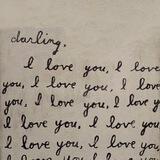 darling,
I love you, I love
you, I love you, I love
you, I love you, I love
I love you, I love you
I love you, I love
I love you, I love
I love you, I love